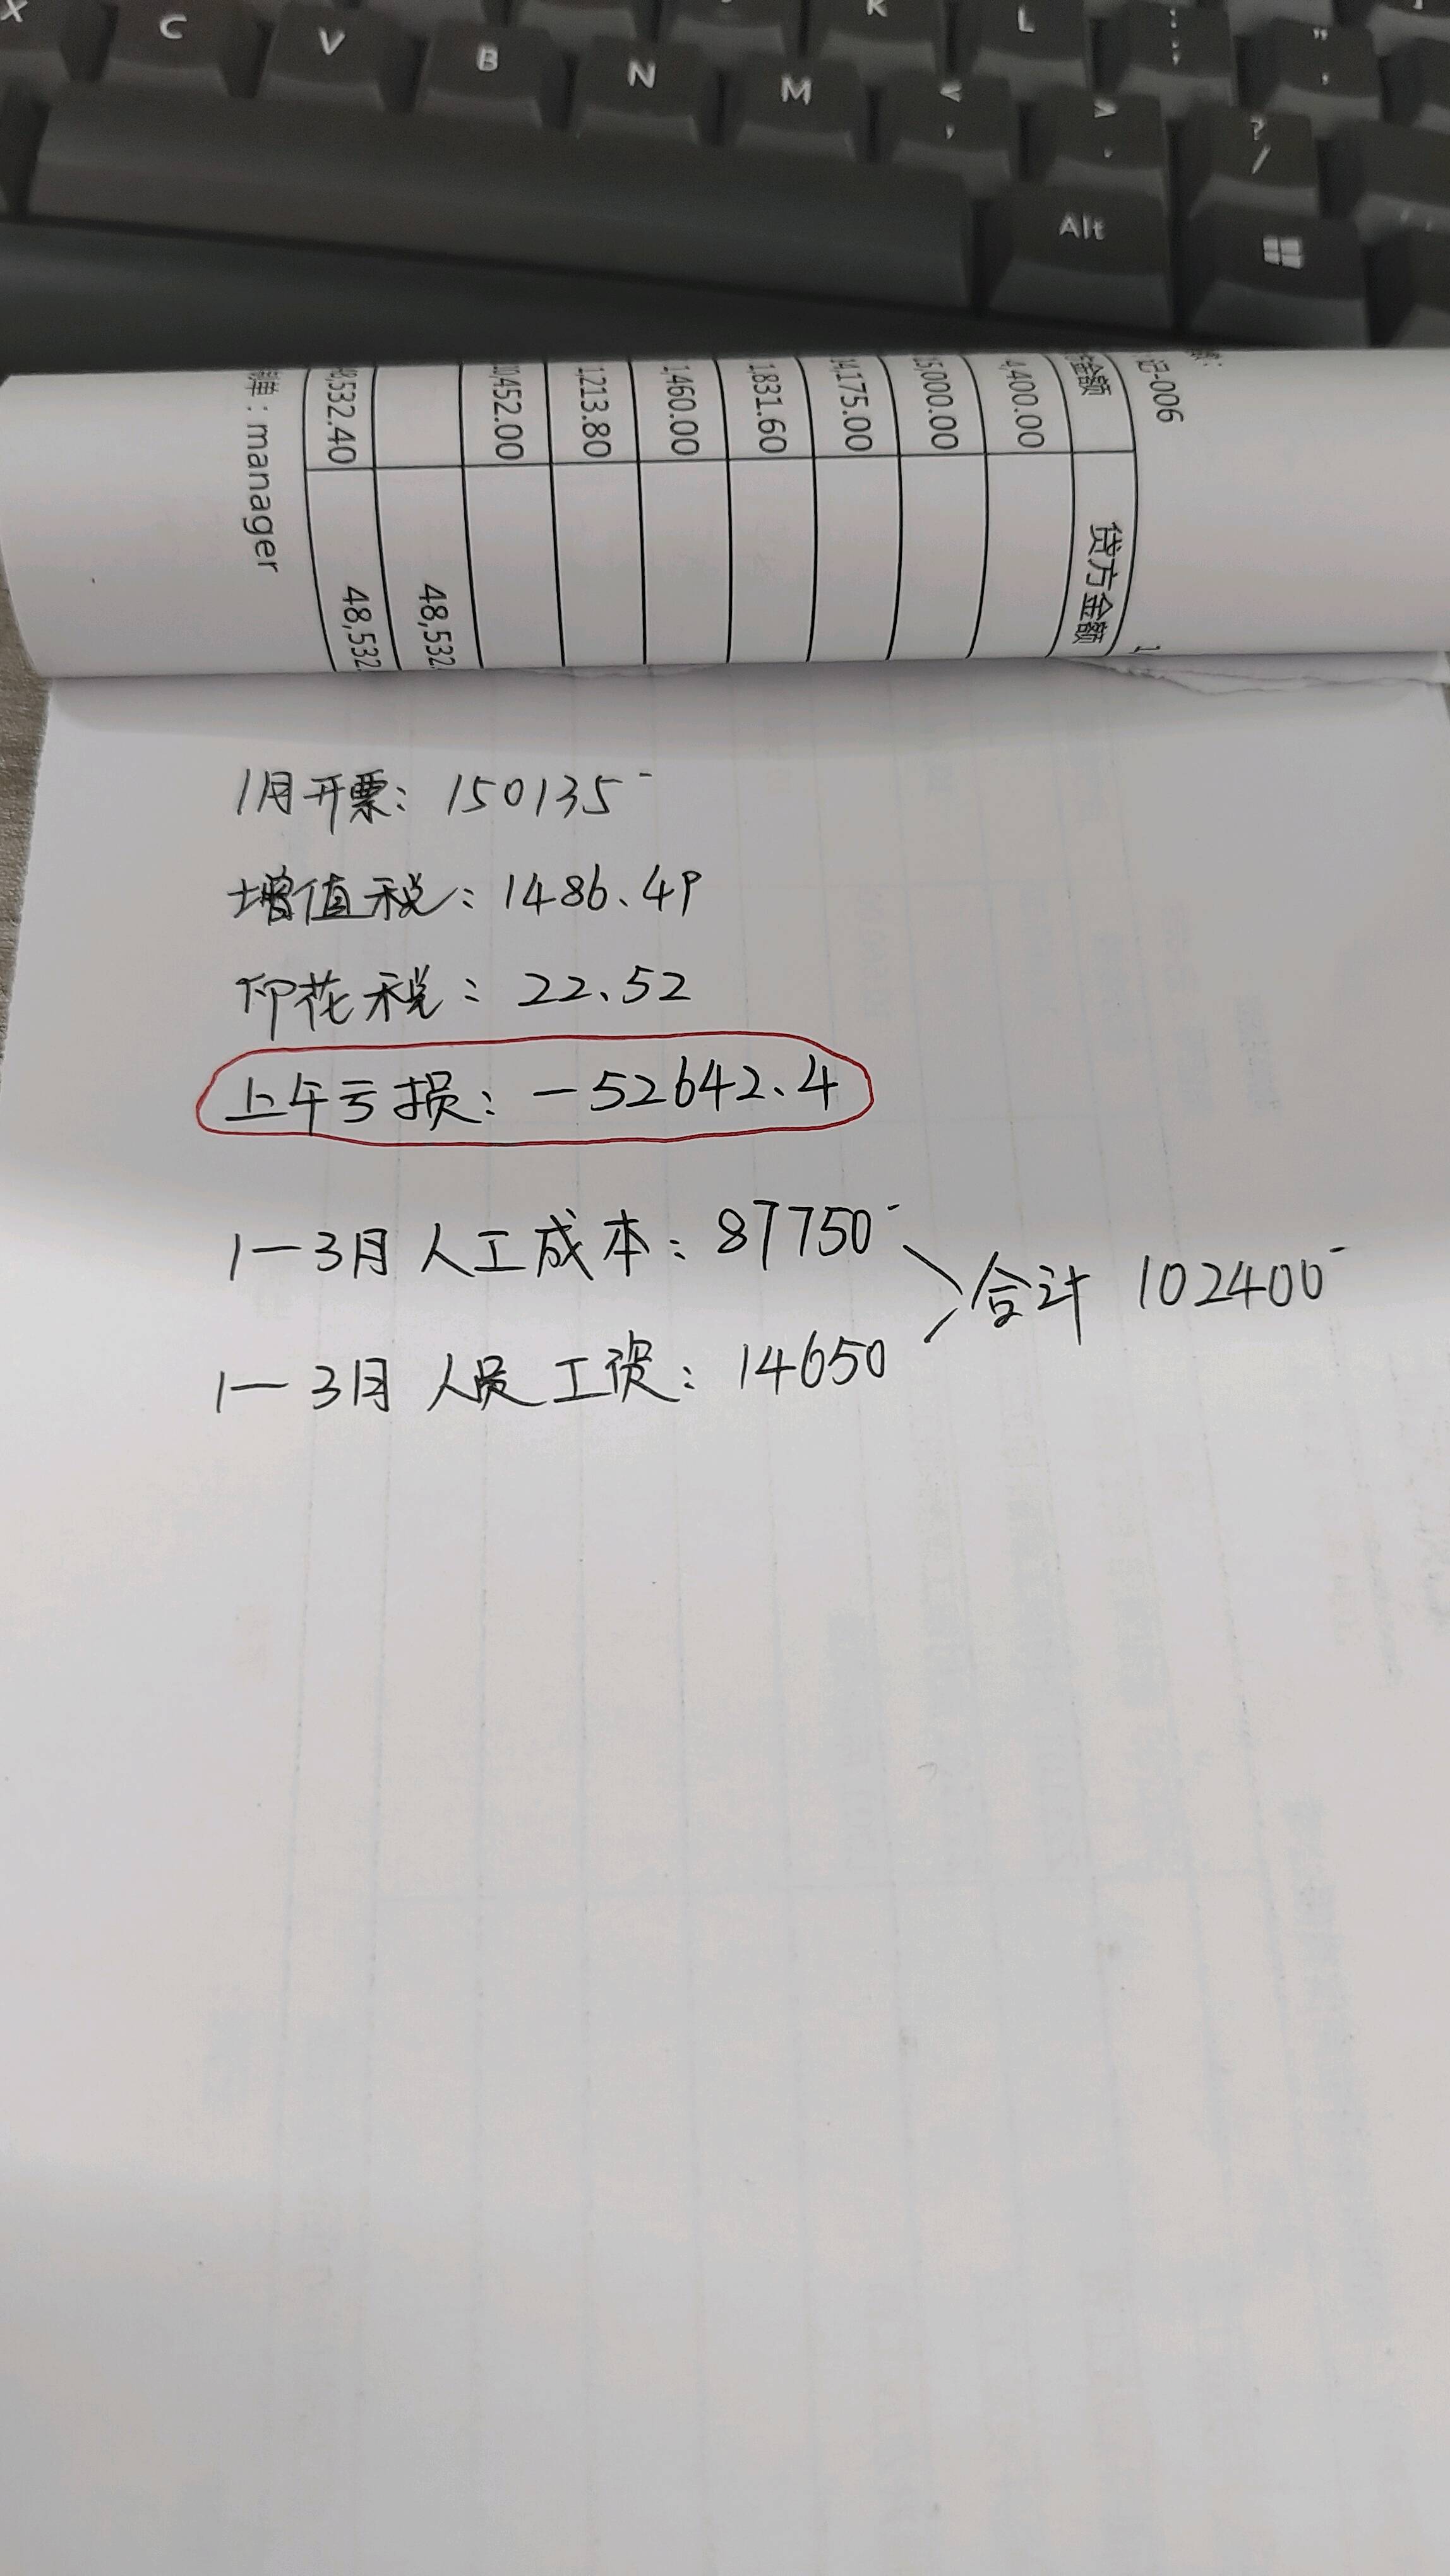 X C V B N M K L : ; " ' < , > . ? /
Alt
记-006
金额 贷方金额
4,400.00
5,000.00
4,175.00
1831.60
1460.00
1213.80
0,452.00
48,532
8,532.40 48,532
单：manager
1月开票：150135-
增值税：1486.49
印花税：22.52
上年亏损：-52642.4
1—3月人工成本：87750-
合计 102400-
1—3月人员工资：14650